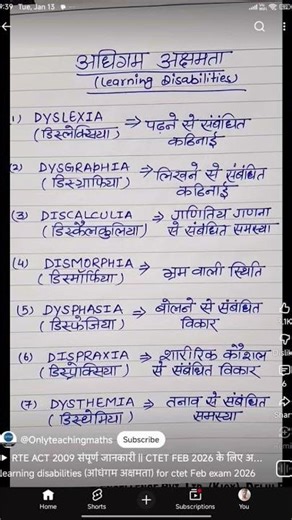 9:39 Tue, Jan 13
अधिगम अक्षमता
(Learning Disabilities)
1) DYSLEXIA ⇒ पढ़ने से संबंधित
(डिस्लेक्सिया) कठिनाई
(2) DYSGRAPHIA ⇒ लिखने से संबंधित
(डिस्ग्राफिया) कठिनाई
(3) DISCALCULIA ⇒ गणितिय गणना
(डिस्कैलकुलिया) से संबंधित समस्या
(4) DISMORPHIA ⇒ भ्रम वाली स्थिति
(डिस्मॉर्फिया)
(5) DYSPHASIA ⇒ बोलने से संबंधित
(डिस्फेजिया) विकार
(6) DISPRAXIA ⇒ शारीरिक कौशल
(डिस्प्रेक्सिया) से संबंधित विकार
(7) DYSTHEMIA ⇒ तनाव से संबंधित
(डिस्थेमिया) समस्या
@Onlyteachingmaths Subscribe
RTE ACT 2009 संपूर्ण जानकारी || CTET FEB 2026 के लिए अ...
learning disabilities (अधिगम अक्षमता) for ctet Feb exam 2026
Home Shorts Subscriptions You